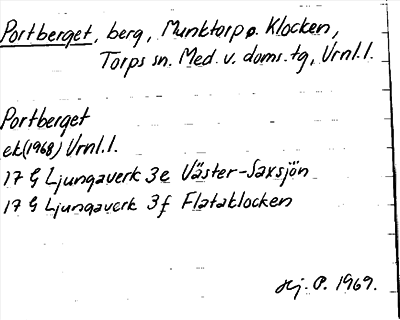 Portberget, berg, Munktorp o. Klocken,
Torps sn. Med. v. doms.tg, Vrnl.l.
Portberget
ek(1968) Vrnl.l.
17 G Ljungaverk 3e Väster-Saxsjön
17 G Ljungaverk 3f Flataklocken
Hj. P. 1969.